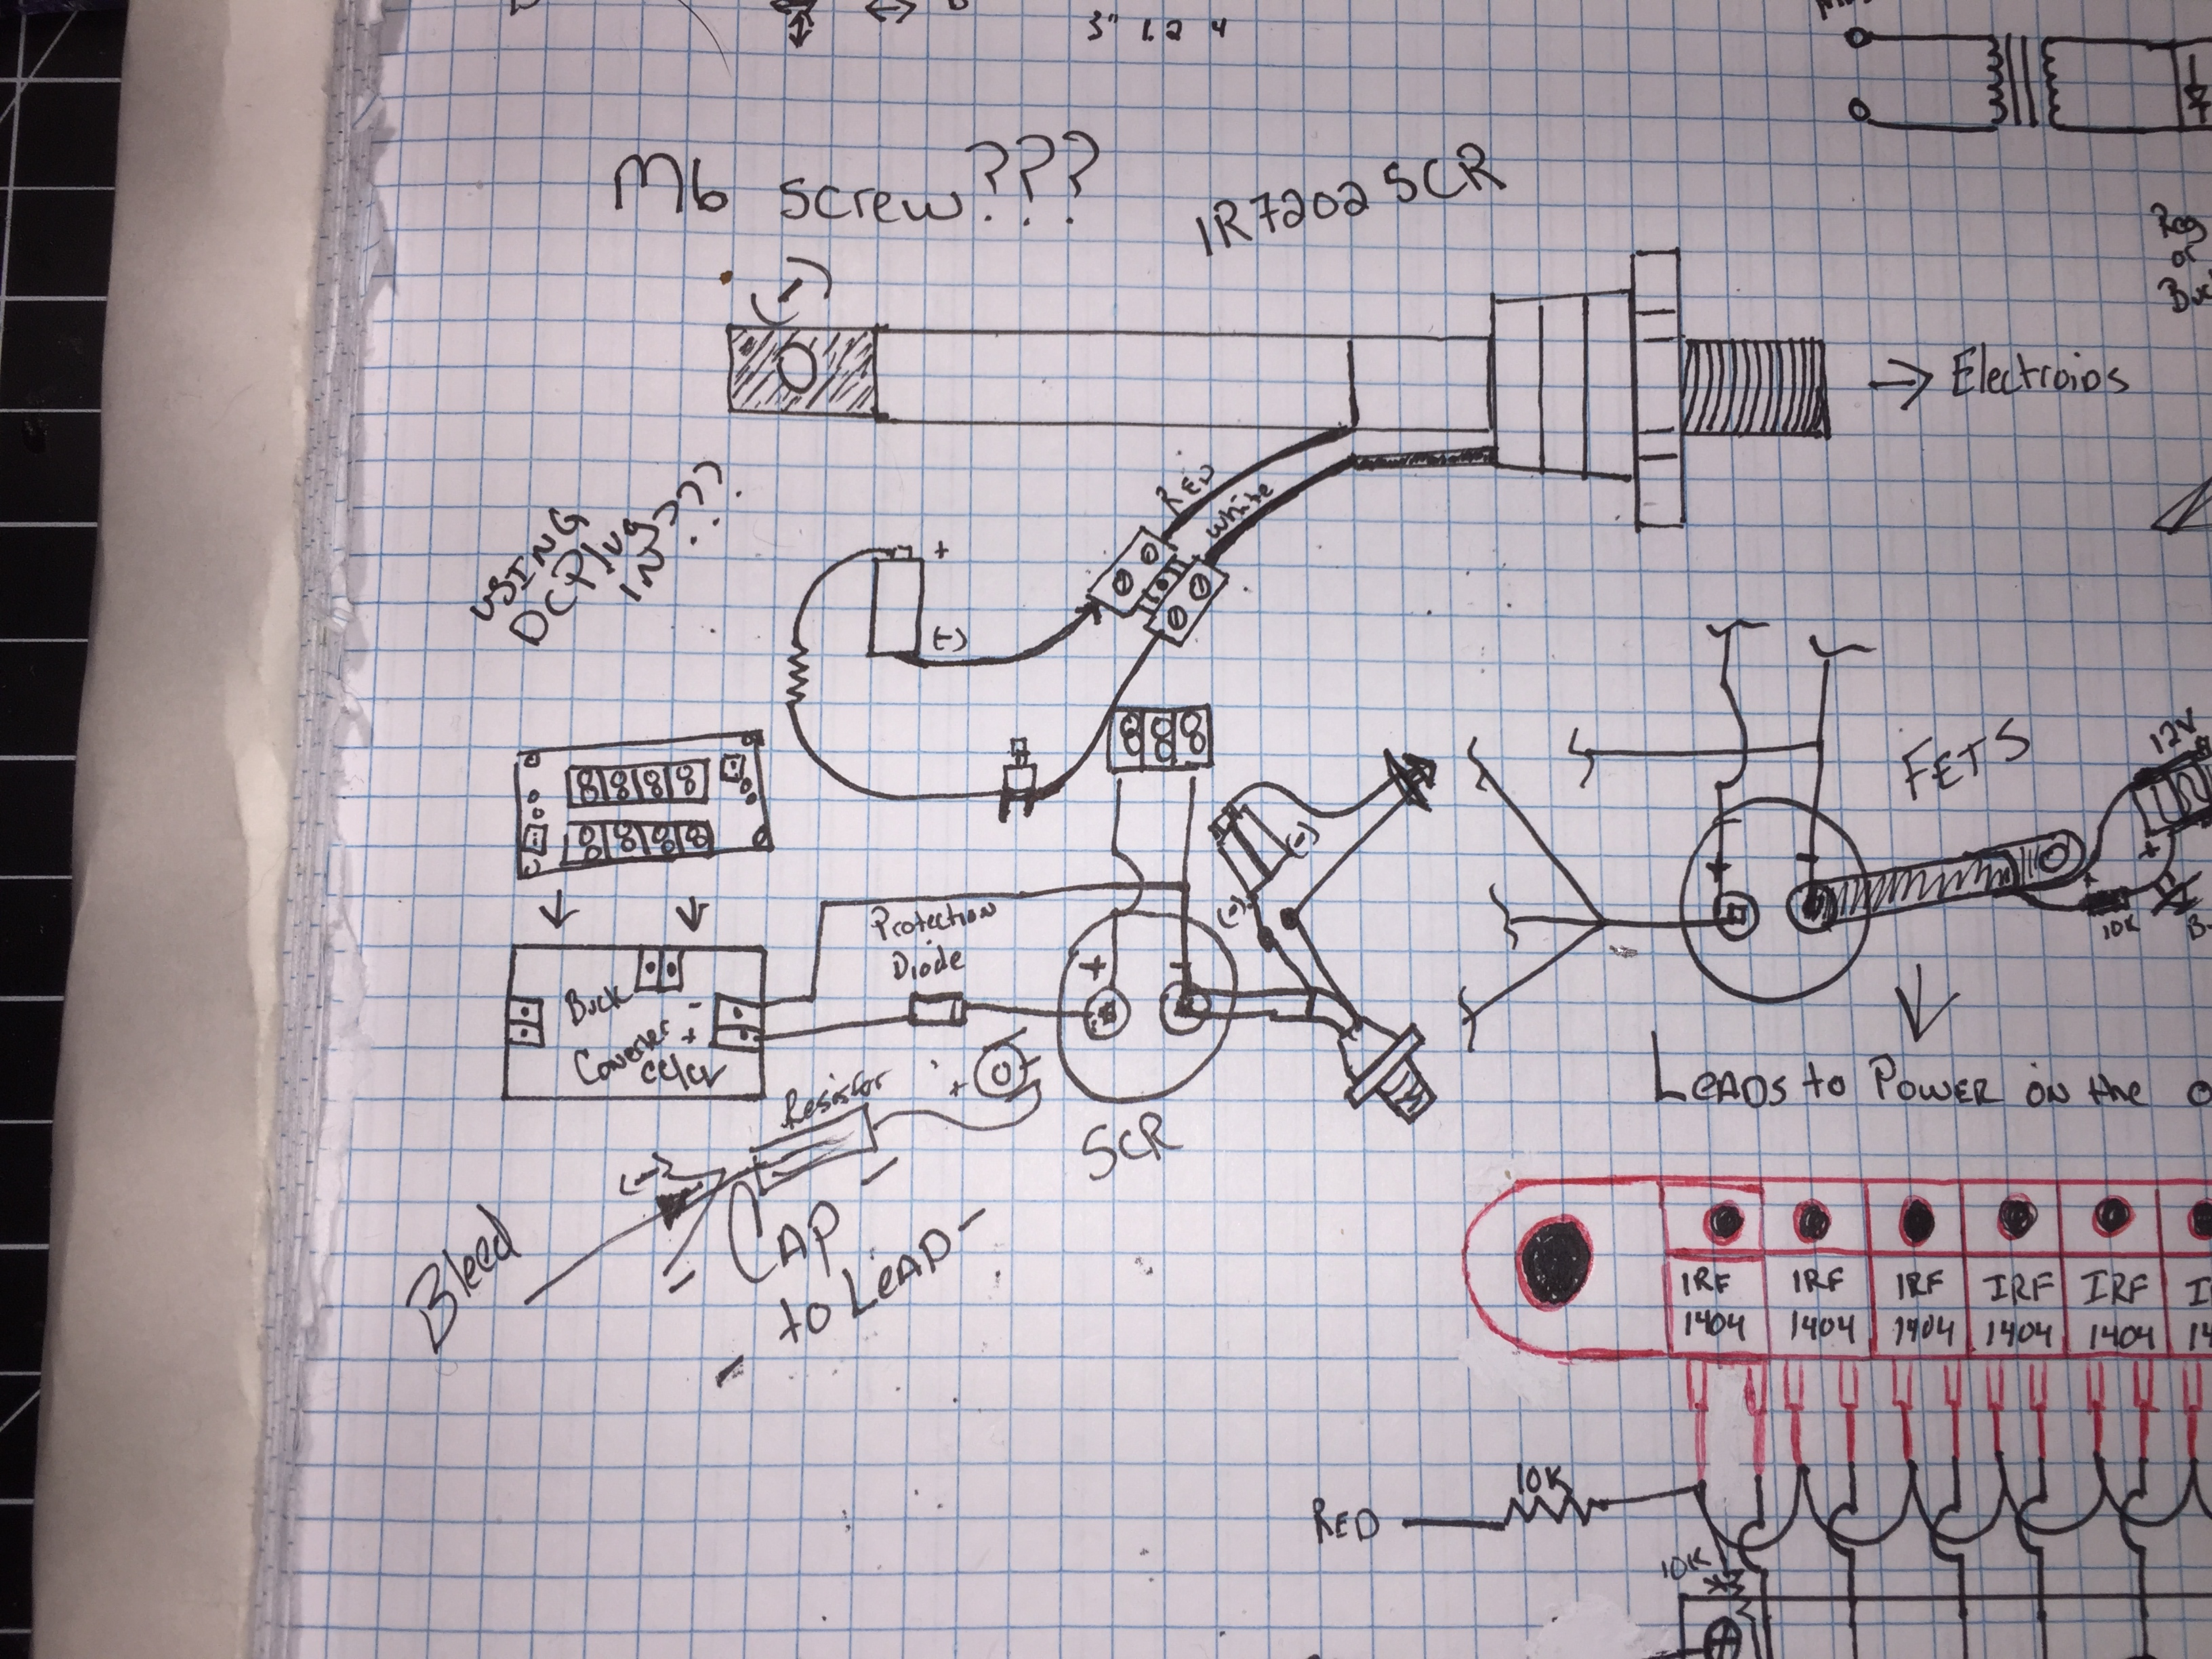 3" 1.2 4
M6 screw???
IR7202 SCR
(-)
→ Electroids
USING
DC Plug
IN???
RED
white
+
(-)
888
8888
8888
Reg
or
FETS
12V
+
10K
Protection
Diode
(-)
(-)
+ -
+ -
Buck
-
+
cc/cv
Resistor
+
SCR
LEADS to POWER on the
(-)
Bleed
CAP
to LEAD-
IRF
1404
IRF
1404
IRF
1404
IRF
1404
IRF
1404
RED
10K
10K